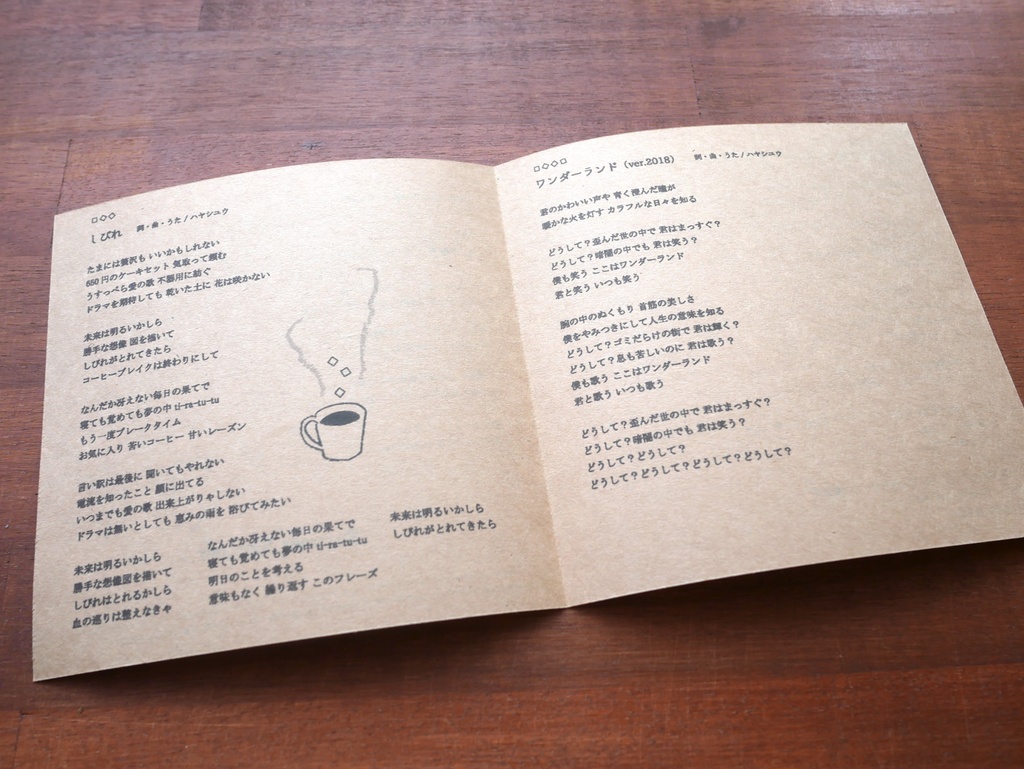 □◇◇
しびれ 詞・曲・うた / ハヤシユウ
たまには贅沢も いいかもしれない
650円のケーキセット 気取って頼む
うすっぺら愛の歌 不器用に紡ぐ
ドラマを期待しても 乾いた土に 花は咲かない
未来は明るいかしら
勝手な想像 図を描いて
しびれがとれてきたら
コーヒーブレイクは終わりにして
なんだか冴えない毎日の果てで
寝ても覚めても夢の中 ti-ra-tu-tu
もう一度ブレークタイム
お気に入り 苦いコーヒー 甘いレーズン
言い訳は最後に 聞いてもやれない
電流を知ったこと 顔に出てる
いつまでも愛の歌 出来上がりゃしない
ドラマは無いとしても 恵みの雨を 浴びてみたい
未来は明るいかしら
勝手な想像図を描いて
しびれはとれるかしら
血の巡りは整えなきゃ
なんだか冴えない毎日の果てで
寝ても覚めても夢の中 ti-ra-tu-tu
明日のことを考える
意味もなく 繰り返す このフレーズ
未来は明るいかしら
しびれがとれてきたら
□◇◇□
ワンダーランド（ver.2018） 詞・曲・うた / ハヤシユウ
君のかわいい声や 青く澄んだ瞳が
暖かな火を灯す カラフルな日々を知る
どうして？歪んだ世の中で 君はまっすぐ？
どうして？暗闇の中でも 君は笑う？
僕も笑う ここはワンダーランド
君と笑う いつも笑う
腕の中のぬくもり 首筋の美しさ
僕をやみつきにして人生の意味を知る
どうして？ゴミだらけの街で 君は輝く？
どうして？息も苦しいのに 君は歌う？
僕も歌う ここはワンダーランド
君と歌う いつも歌う
どうして？歪んだ世の中で 君はまっすぐ？
どうして？暗闇の中でも 君は笑う？
どうして？どうして？
どうして？どうして？どうして？どうして？